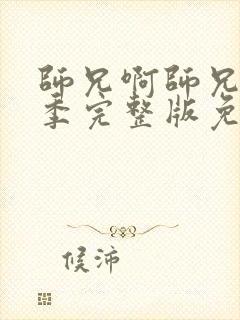 師兄啊師兄
季完整版免
候沛